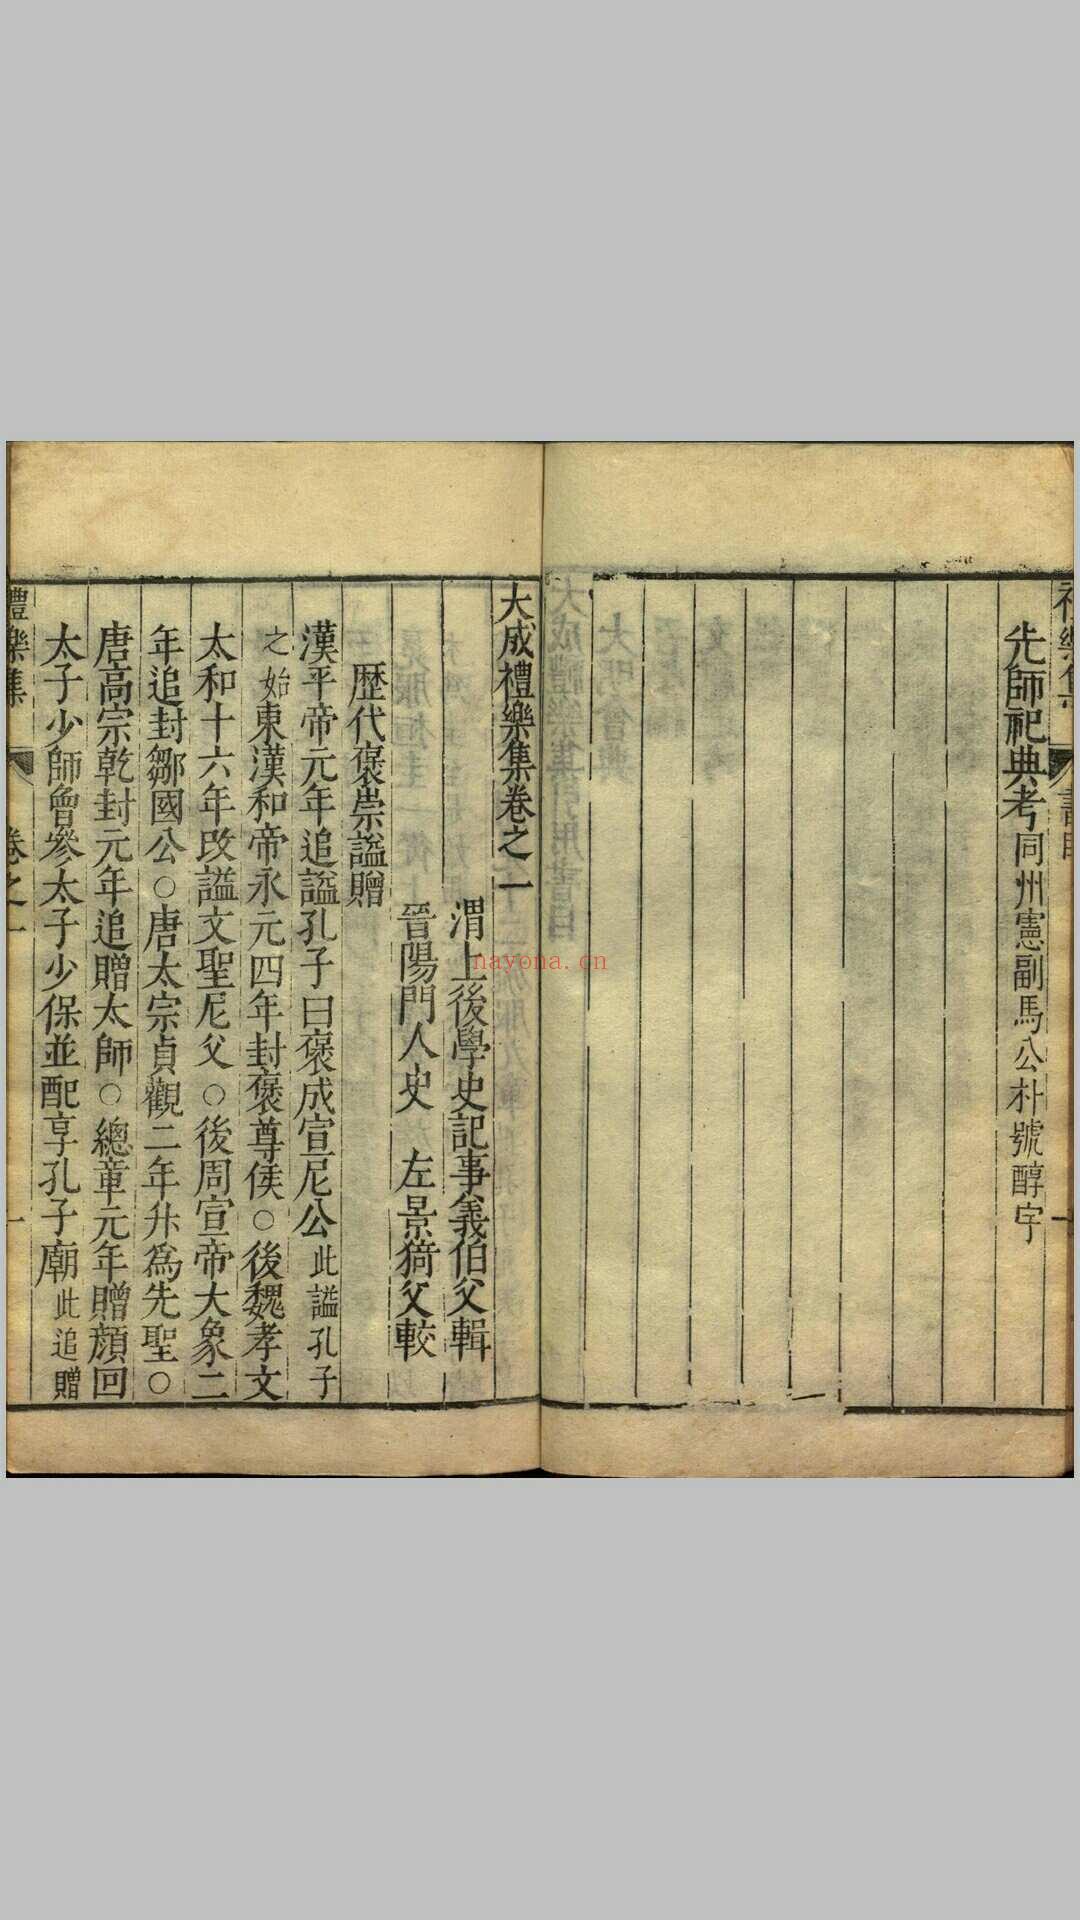 先師祀典考同州憲副馬公朴號醇宇
大成禮樂集卷之一
渭上後學史記事義伯父輯
晉陽門人史　左景猗父較
歷代褒崇謚贈
漢平帝元年追謚孔子曰褒成宣尼公此謚孔子
之始東漢和帝永元四年封褒尊侯○後魏孝文
太和十六年改謚文聖尼父○後周宣帝大象二
年追封鄒國公○唐太宗貞觀二年升為先聖○
唐高宗乾封元年追贈太師○總章元年贈顏回
太子少師曾參太子少保並配享孔子廟此追贈
禮樂集
卷之一
一
nayona.cn